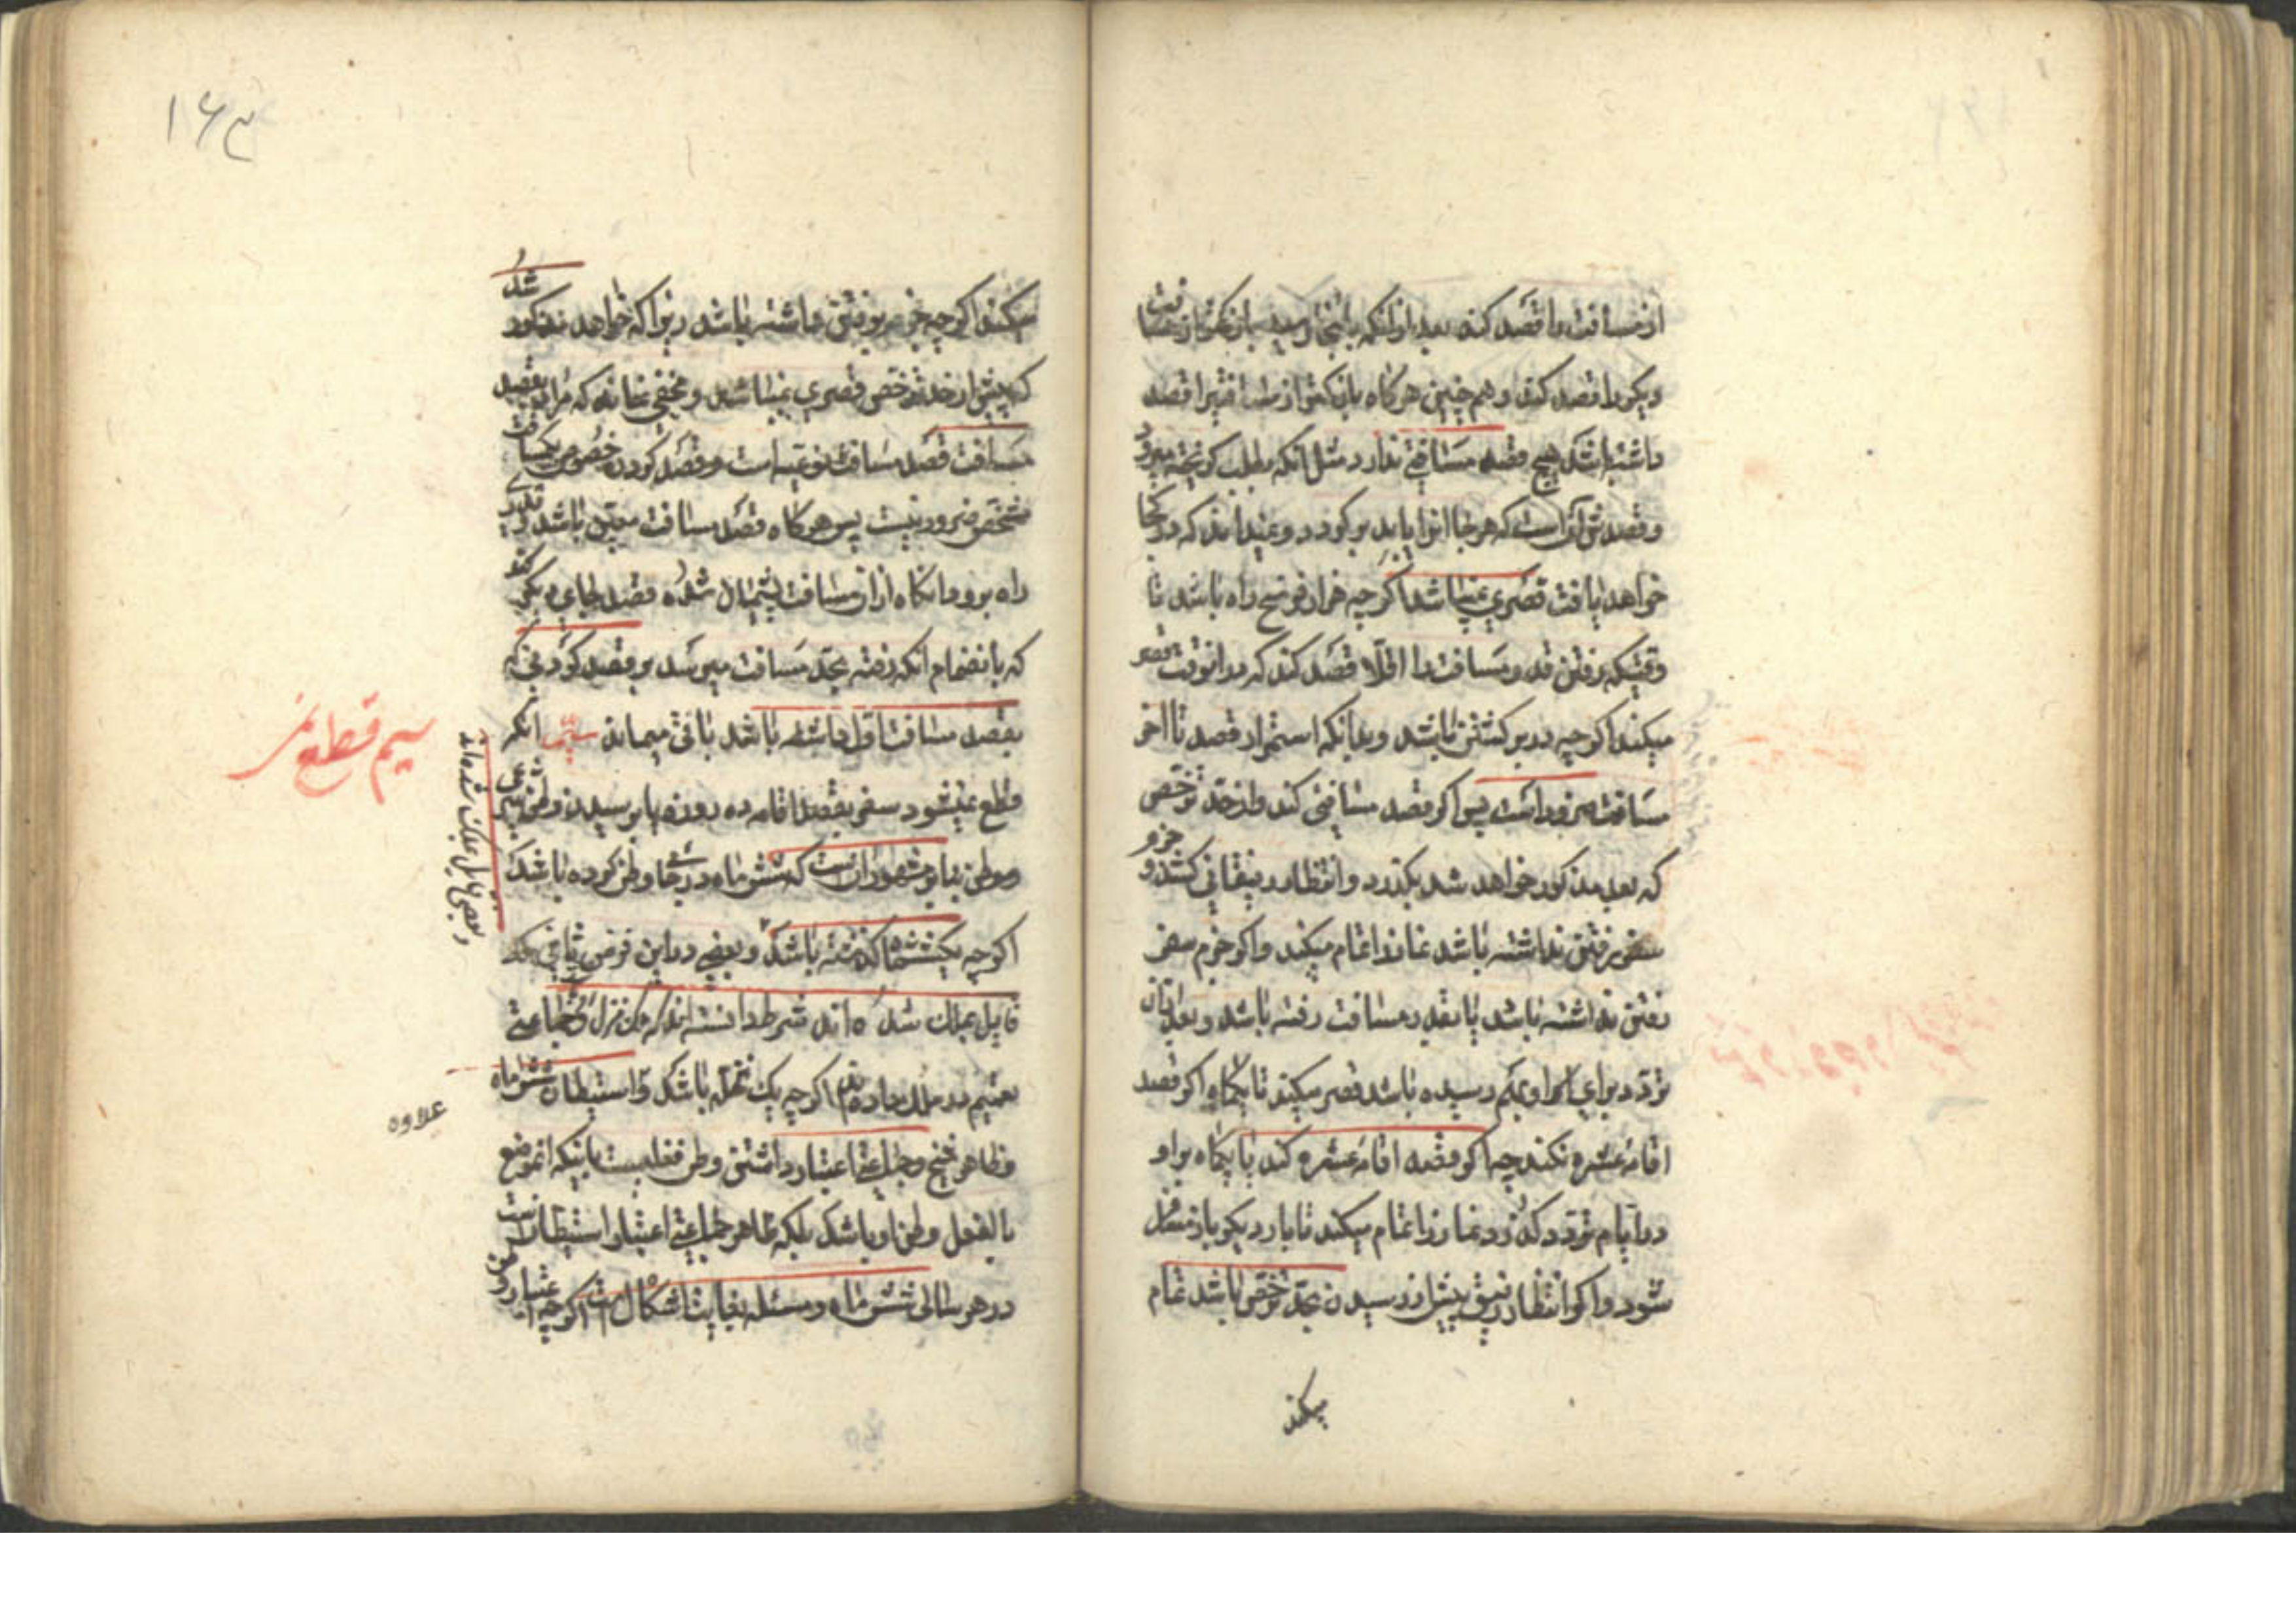 از مسافت را قصد کند بعد از آنکه بآنجا رسید باز کمتر از مسافت
دیگر را قصد کند و هم چنین هرگاه باز کمتر از مسافتیرا قصد
داشته باشد هیچ قصد مسافتی ندارد مثل آنکه بطلب گریخته میرود
و قصدش آنست که هرجا او را یابد برگردد و نمیداند که در کجا
خواهد یافت قصری نمیباشد اگر چه هزار فرسخ راه باشد تا
وقتیکه برفتن قدر مسافت را اقلا قصد کند که در آنوقت قصر
میکند اگر چه در برگشتن باشد و بدانکه استمرار قصد تا آخر
مسافت ضرور است پس اگر قصد مسافتی کند و از حد ترخص
که بعد مذکور خواهد شد بگذرد و انتظار رفیقانی کشد و جزم
سفر برفتن نداشته باشد نماز را تمام میکند و اگر جزم سفر
رفتن نداشته باشد یا بقدر مسافت رفته باشد و بعد از آن
تردد برای او بهم رسیده باشد قصر میکند تا یکماه اگر قصد
اقامه عشره نکند چه اگر قصد اقامه عشره کند یا یکماه بر او
در ایام تردد گذرد نماز را تمام میکند تا بار دیگر باز مسافر
شود و اگر انتظار رفیق پیش از رسیدن بحد ترخص باشد تمام
میکند
۱۶۳
میکند اگر چه جزم برفتن داشته باشد زیرا که خواهد مذکور شد
که پیش از حد ترخص قصری نمیباشد و مخفی نماند که مراد بقصد
مسافت قصد مسافت نوعیه است و قصد کردن خصوص یک مسافت
مشخص ضرور نیست پس هرگاه قصد مسافت معین باشد و قدری
راه برود آنگاه از آن مسافت پشیمان شده قصد بجای دیگر کند
که بانضمام آنکه رفته بحد مسافت میرسد بر قصر کردنی که
بقصد مسافت اول داشته باشد باقی میماند سیم آنکه
قطع نمیشود سفر بقصد اقامه ده روزه یا برسیدن وطن شرعی
و وطن بنا بر مشهور آنست که شش ماه در جائی وطن کرده باشد
اگر چه یکشش ماه گذشته باشد و بعضی در این فرض ثانی که
قایل بملک شده اند شرط دانسته اند که ملک منزل و جماعتی
تعمیم در ملک داده اند اگر چه یک نخله باشد و استیطان شش ماه
و ظاهر شیخ و جماعتی اعتبار داشتن وطن فعلیست باینکه آنموضع
بالفعل وطن او باشد بلکه ظاهر جماعتی اعتبار استیطانست
در هر سالی شش ماه و مسئله بغایت اشکال است اگر چه اعتبار
سیم قطع
و بعضی قایل بملک شده اند
علاوه